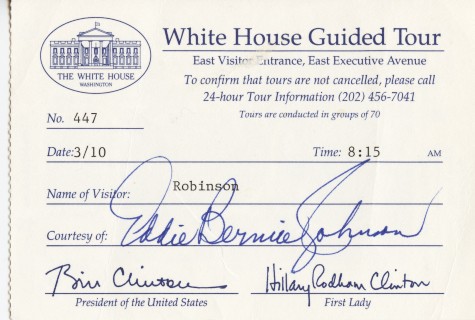 White House Guided Tour
East Visitor Entrance, East Executive Avenue
To confirm that tours are not cancelled, please call
24-hour Tour Information (202) 456-7041
Tours are conducted in groups of 70
THE WHITE HOUSE
WASHINGTON
No. 447
Date:3/10 Time: 8:15 AM
Name of Visitor: Robinson
Courtesy of: Eddie Bernice Johnson
Bill Clinton Hillary Rodham Clinton
President of the United States First Lady